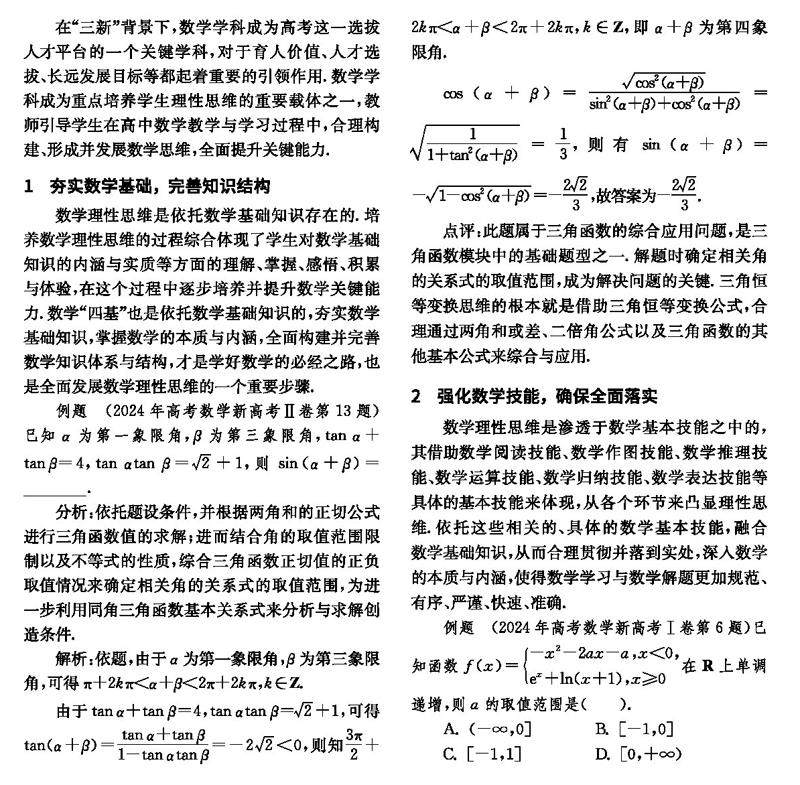 在“三新”背景下,数学学科成为高考这一选拔
人才平台的一个关键学科,对于育人价值、人才选
拔、长远发展目标等都起着重要的引领作用.数学学
科成为重点培养学生理性思维的重要载体之一,教
师引导学生在高中数学教学与学习过程中,合理构
建、形成并发展数学思维,全面提升关键能力.
1 夯实数学基础,完善知识结构
数学理性思维是依托数学基础知识存在的.培
养数学理性思维的过程综合体现了学生对数学基础
知识的内涵与实质等方面的理解、掌握、感悟、积累
与体验,在这个过程中逐步培养并提升数学关键能
力.数学“四基”也是依托数学基础知识的,夯实数学
基础知识,掌握数学的本质与内涵,全面构建并完善
数学知识体系与结构,才是学好数学的必经之路,也
是全面发展数学理性思维的一个重要步骤.
例题 (2024年高考数学新高考Ⅱ卷第13题)
已知α为第一象限角,β为第三象限角,tan α+
tan β=4,tan αtan β=√2+1,则 sin(α+β)=
________.
分析:依托题设条件,并根据两角和的正切公式
进行三角函数值的求解;进而结合角的取值范围限
制以及不等式的性质,综合三角函数正切值的正负
取值情况来确定相关角的关系式的取值范围,为进
一步利用同角三角函数基本关系式来分析与求解创
造条件.
解析:依题,由于α为第一象限角,β为第三象限
角,可得π+2kπ<α+β<2π+2kπ,k∈Z.
由于tan α+tan β=4,tan αtan β=√2+1,可得
tan(α+β)=(tan α+tan β)/(1-tan αtan β)=-2√2<0,则知3π/2+
2kπ<α+β<2π+2kπ,k∈Z,即α+β为第四象
限角.
cos(α+β)=√cos²(α+β)/(sin²(α+β)+cos²(α+β))=
√(1/(1+tan²(α+β)))=1/3,则有 sin(α+β)=
-√(1-cos²(α+β))=-2√2/3,故答案为-2√2/3.
点评:此题属于三角函数的综合应用问题,是三
角函数模块中的基础题型之一.解题时确定相关角
的关系式的取值范围,成为解决问题的关键.三角恒
等变换思维的根本就是借助三角恒等变换公式,合
理通过两角和或差、二倍角公式以及三角函数的其
他基本公式来综合与应用.
2 强化数学技能,确保全面落实
数学理性思维是渗透于数学基本技能之中的,
其借助数学阅读技能、数学作图技能、数学推理技
能、数学运算技能、数学归纳技能、数学表达技能等
具体的基本技能来体现,从各个环节来凸显理性思
维.依托这些相关的、具体的数学基本技能,融合
数学基础知识,从而合理贯彻并落到实处,深入数学
的本质与内涵,使得数学学习与数学解题更加规范、
有序、严谨、快速、准确.
例题 (2024年高考数学新高考Ⅰ卷第6题)已
知函数f(x)={-x²-2ax-a,x<0, eˣ+ln(x+1),x≥0 在R上单调
递增,则a的取值范围是( ).
A. (-∞,0] B. [-1,0]
C. [-1,1] D. [0,+∞)